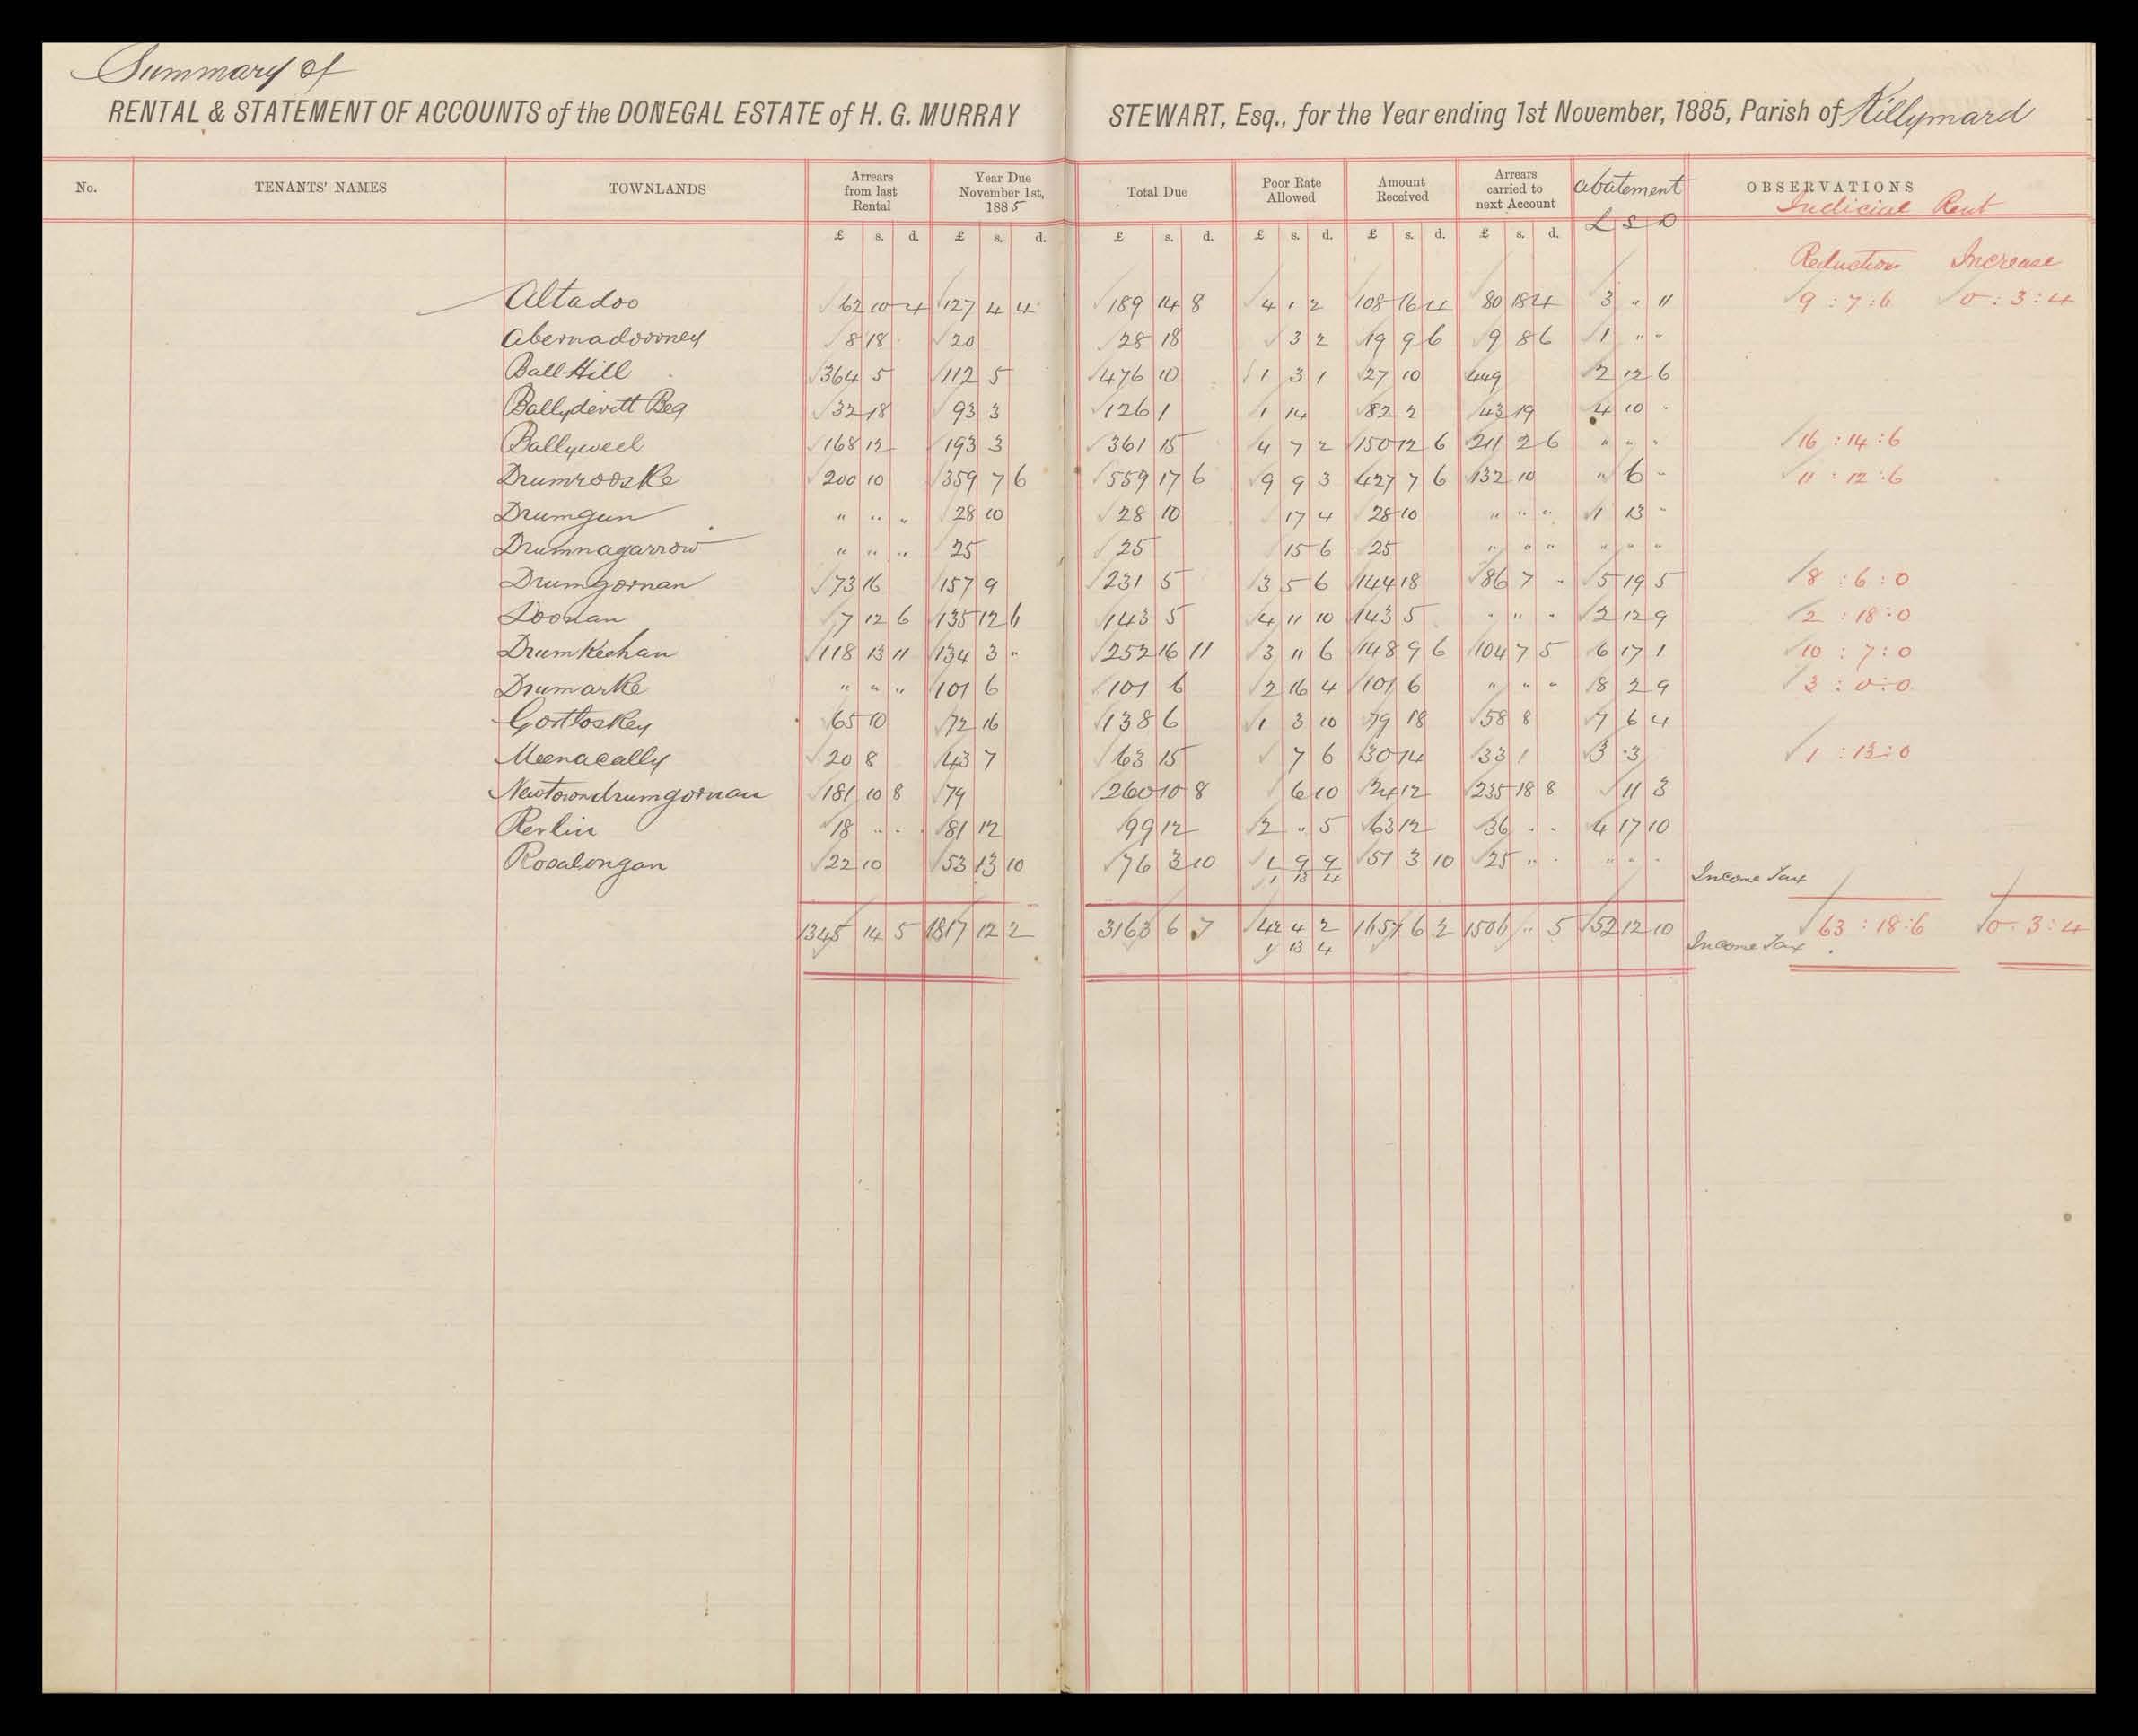 Summary of
RENTAL & STATEMENT OF ACCOUNTS of the DONEGAL ESTATE of H. G. MURRAY STEWART, Esq., for the Year ending 1st November, 1885, Parish of Killymard
No. TENANTS' NAMES TOWNLANDS Arrears from last Rental Year Due November 1st, 1885 Total Due Poor Rate Allowed Amount Received Arrears carried to next Account Abatement OBSERVATIONS
Judicial Rent
£ s. d. £ s. d. £ s. d. £ s. d. £ s. d. £ s. d. £ S D
Reduction Increase
Altadoo 62 10 4 127 4 4 189 14 8 4 1 2 108 16 4 80 18 4 3 " 11 9 : 7 : 6 0 : 3 : 4
Abernadoorney 8 18 20 28 18 3 2 19 9 6 9 8 6 1 " "
Ball-Hill 364 5 112 5 476 10 1 3 1 27 10 449 2 12 6
Ballydevitt Beg 32 18 93 3 126 1 1 14 82 2 43 19 4 10 "
Ballyweel 168 12 193 3 361 15 4 7 2 150 12 6 211 2 6 " " " 16 : 14 : 6
Drumrooske 200 10 359 7 6 559 17 6 9 9 3 427 7 6 132 10 " 6 " 11 : 12 : 6
Drumgun " " " 28 10 28 10 17 4 28 10 " " " 1 13 "
Drumnagarrow " " " 25 25 15 6 25 " " " " " "
Drumgornan 73 16 157 9 231 5 3 5 6 144 18 86 7 " 5 19 5 8 : 6 : 0
Doonan 7 12 6 135 12 6 143 5 4 11 10 143 5 " " " 2 12 9 2 : 18 : 0
Drumkeehan 118 13 11 134 3 " 252 16 11 3 " 6 148 9 6 104 7 5 6 17 1 10 : 7 : 0
Drumarke " " " 101 6 101 6 2 16 4 101 6 " " " 8 2 9 3 : 0 : 0
Gortloskey 65 10 72 16 138 6 1 3 10 79 18 58 8 7 6 4
Meenacally 20 8 43 7 63 15 7 6 30 14 33 1 3 3 1 : 13 : 0
Newtowndrumgornan 181 10 8 79 260 10 8 6 10 24 12 235 18 8 11 3
Revlin 18 " " 81 12 99 12 2 " 5 63 12 36 " " 4 17 10
Rosalongan 22 10 53 13 10 76 3 10 1 9 9 51 3 10 25 " " " " "
1 13 4 Income Tax
1345 14 5 1817 12 2 3163 6 7 42 4 2 1657 6 2 1506 " 5 52 12 10 63 : 18 : 6 0 : 3 : 4
1 13 4 Income Tax